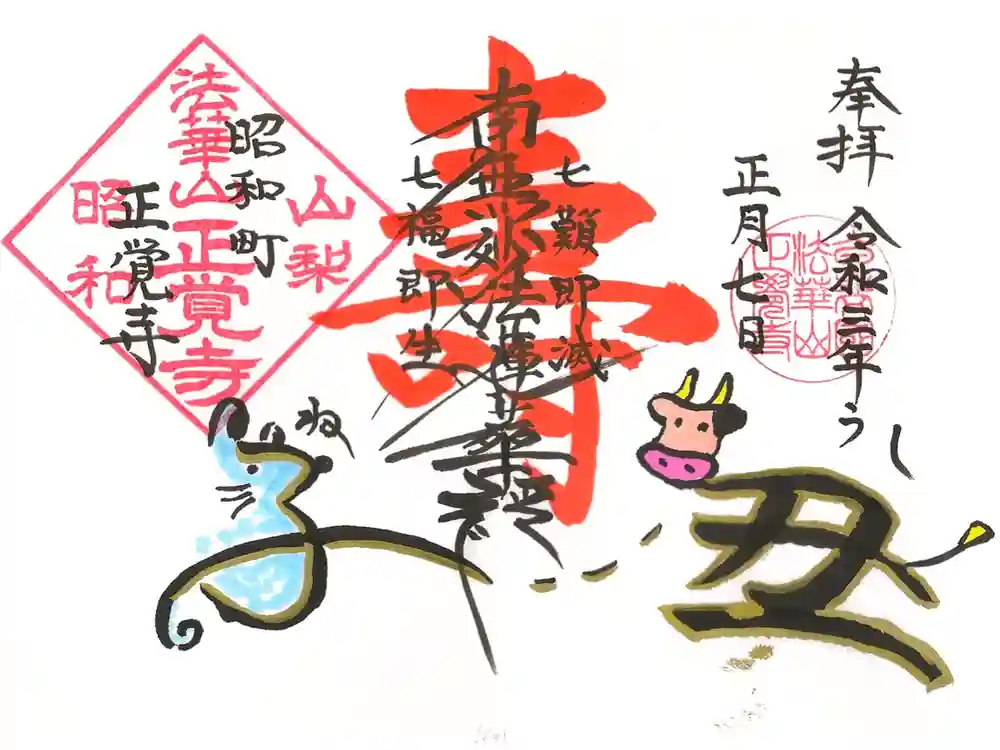 奉拝 令和三年うし
正月七日
七難即滅
南無妙法蓮華経
七福即生
寿
山梨
法華山正覚寺
昭和
昭和町
正覚寺
ね
丑
法華山
正覺寺